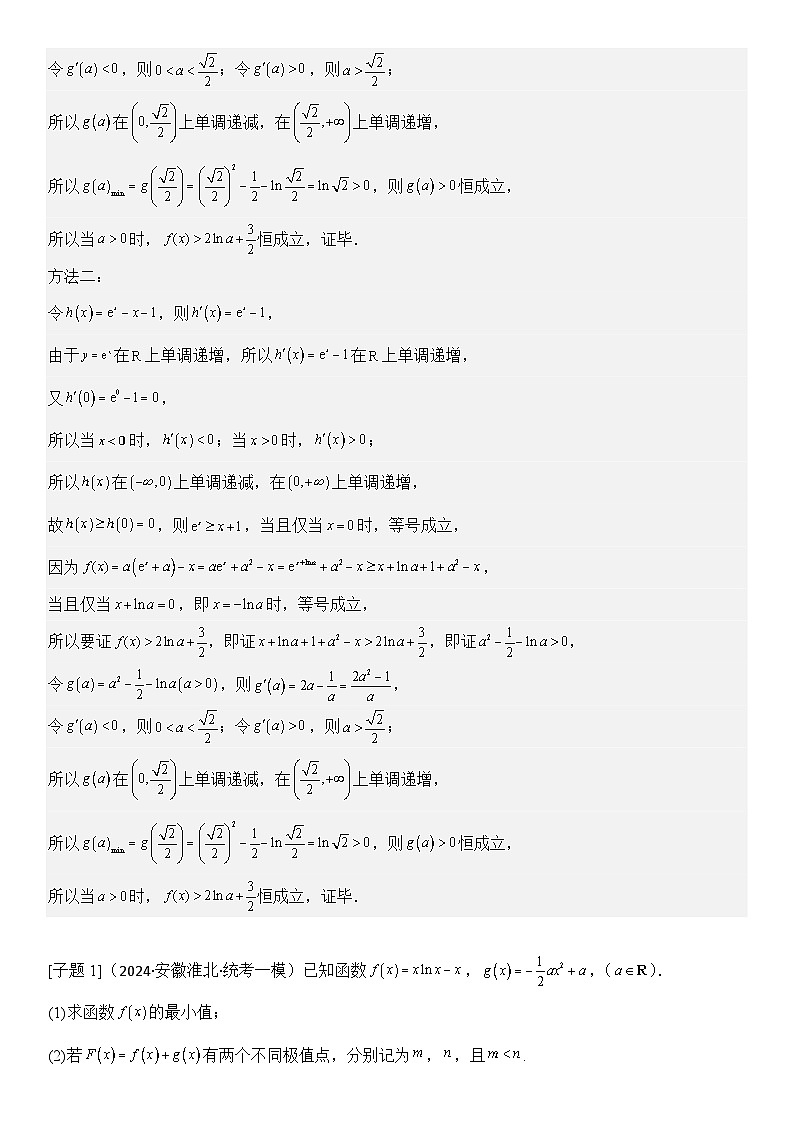 令g′(a)<0，则0<a<√2/2；令g′(a)>0，则a>√2/2；
所以g(a)在(0,√2/2)上单调递减，在(√2/2,+∞)上单调递增，
所以g(a)min=g(√2/2)=(√2/2)²-1/2-ln√2/2=ln√2>0，则g(a)>0恒成立，
所以当a>0时，f(x)>2lna+3/2恒成立，证毕．
方法二：
令h(x)=eˣ-x-1，则h′(x)=eˣ-1，
由于y=eˣ在R上单调递增，所以h′(x)=eˣ-1在R上单调递增，
又h′(0)=e⁰-1=0，
所以当x<0时，h′(x)<0；当x>0时，h′(x)>0；
所以h(x)在(-∞,0)上单调递减，在(0,+∞)上单调递增，
故h(x)≥h(0)=0，则eˣ≥x+1，当且仅当x=0时，等号成立，
因为f(x)=a(eˣ+a)-x=aeˣ+a²-x=e^(x+lna)+a²-x≥x+lna+1+a²-x，
当且仅当x+lna=0，即x=-lna时，等号成立，
所以要证f(x)>2lna+3/2，即证x+lna+1+a²-x>2lna+3/2，即证a²-1/2-lna>0，
令g(a)=a²-1/2-lna(a>0)，则g′(a)=2a-1/a=(2a²-1)/a，
令g′(a)<0，则0<a<√2/2；令g′(a)>0，则a>√2/2；
所以g(a)在(0,√2/2)上单调递减，在(√2/2,+∞)上单调递增，
所以g(a)min=g(√2/2)=(√2/2)²-1/2-ln√2/2=ln√2>0，则g(a)>0恒成立，
所以当a>0时，f(x)>2lna+3/2恒成立，证毕．
[子题1]（2024·安徽淮北·统考一模）已知函数f(x)=xlnx-x，g(x)=-1/2ax²+a，（a∈R）．
(1)求函数f(x)的最小值；
(2)若F(x)=f(x)+g(x)有两个不同极值点，分别记为m，n，且m<n．